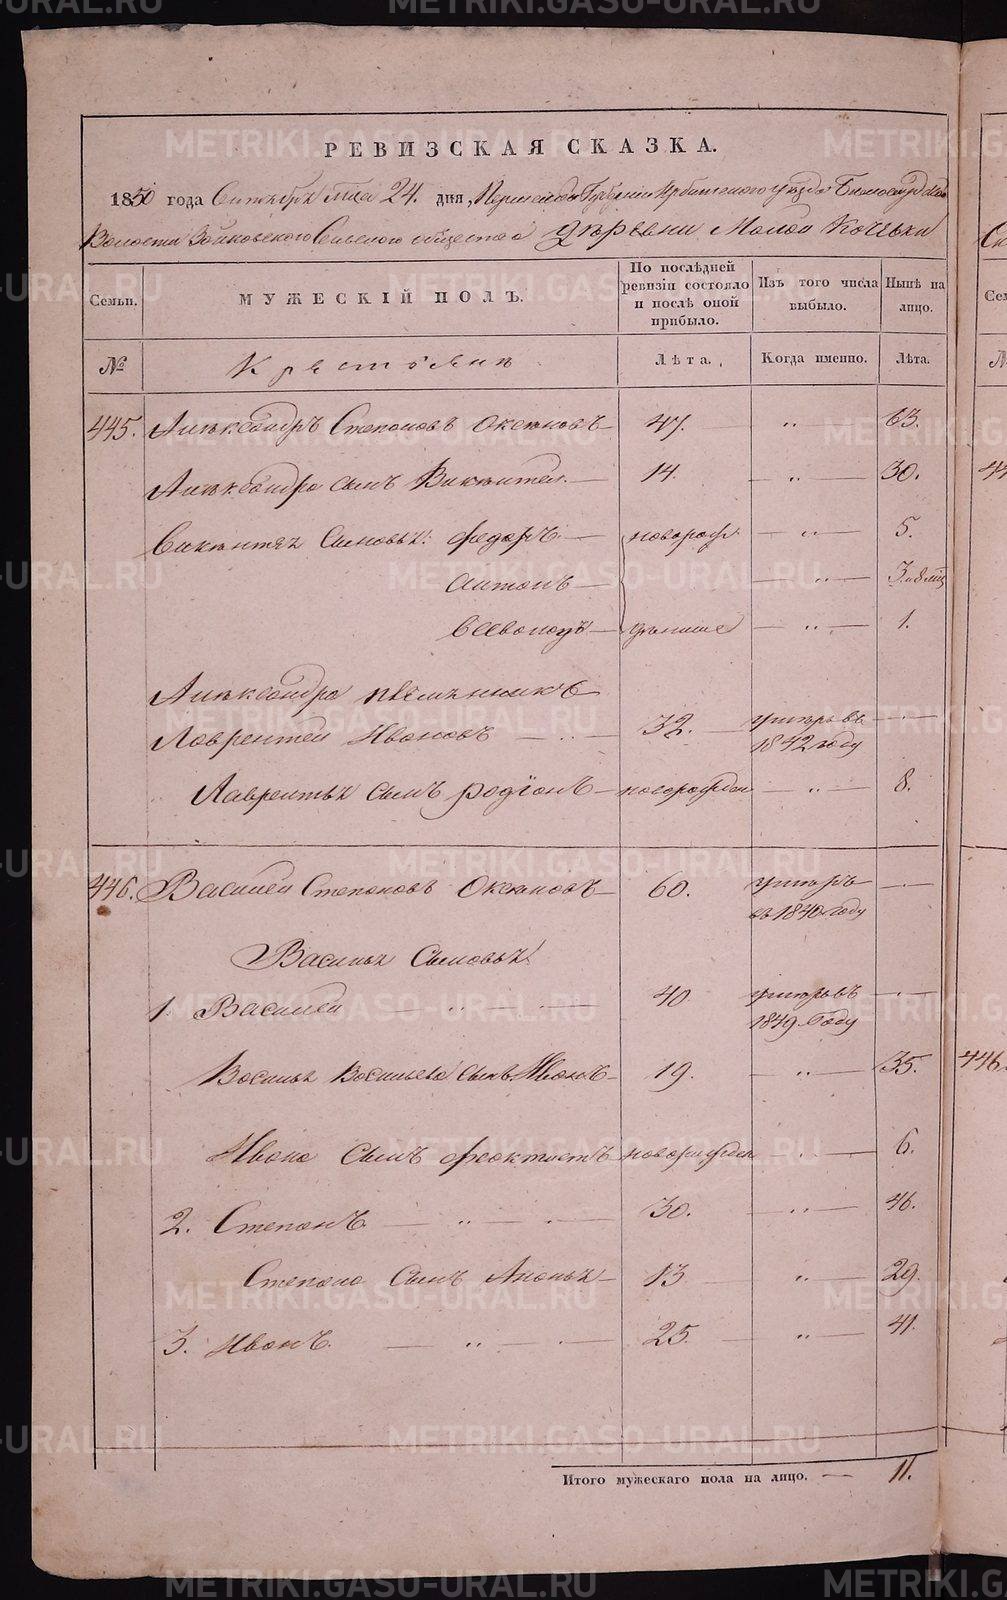 РЕВИЗСКАЯ СКАЗКА.
1850 года Сентября м͠ца 24. дня, Пермской Губернiи Ирбитского уѣзда Белослудской
Волости Зайковского Сельского общества деревни Малой Кочевки
Семьи.
МУЖЕСКІЙ ПОЛЪ.
По послѣдней ревизіи состояло и послѣ оной прибыло.
Изъ того числа выбыло.
Нынѣ на лицо.
№
Крестьяне
Лѣта.
Когда именно.
Лѣта.
445. Александръ Степановъ 47. „ 63.
Александра сынъ Викентей. 14. „ 30.
Викентья Сыновья: Федоръ новорож „ 5.
Антонъ „ 3.
Всеволодъ денные „ 1.
Александра племянникъ
Лаврентей Ивановъ 32. умеръ въ
1842 году
Лаврентья сынъ Родіонъ новорожден „ 8.
446. Василей Степановъ 60. умеръ
въ 1840 году
Василья Сыновья:
1. Василей „ 40 умеръ въ
1849 Году
Василья Васильева сынъ Иванъ 19. „ 35.
Ивана Сынъ Феоктистъ новорожден „ 6.
2. Степанъ „ 30. „ 46.
Степана Сынъ 13 „ 29.
3. Иванъ. „ 25. „ 41.
Итого мужескаго пола на лицо. — 11.
METRIKI.GASO-URAL.RU